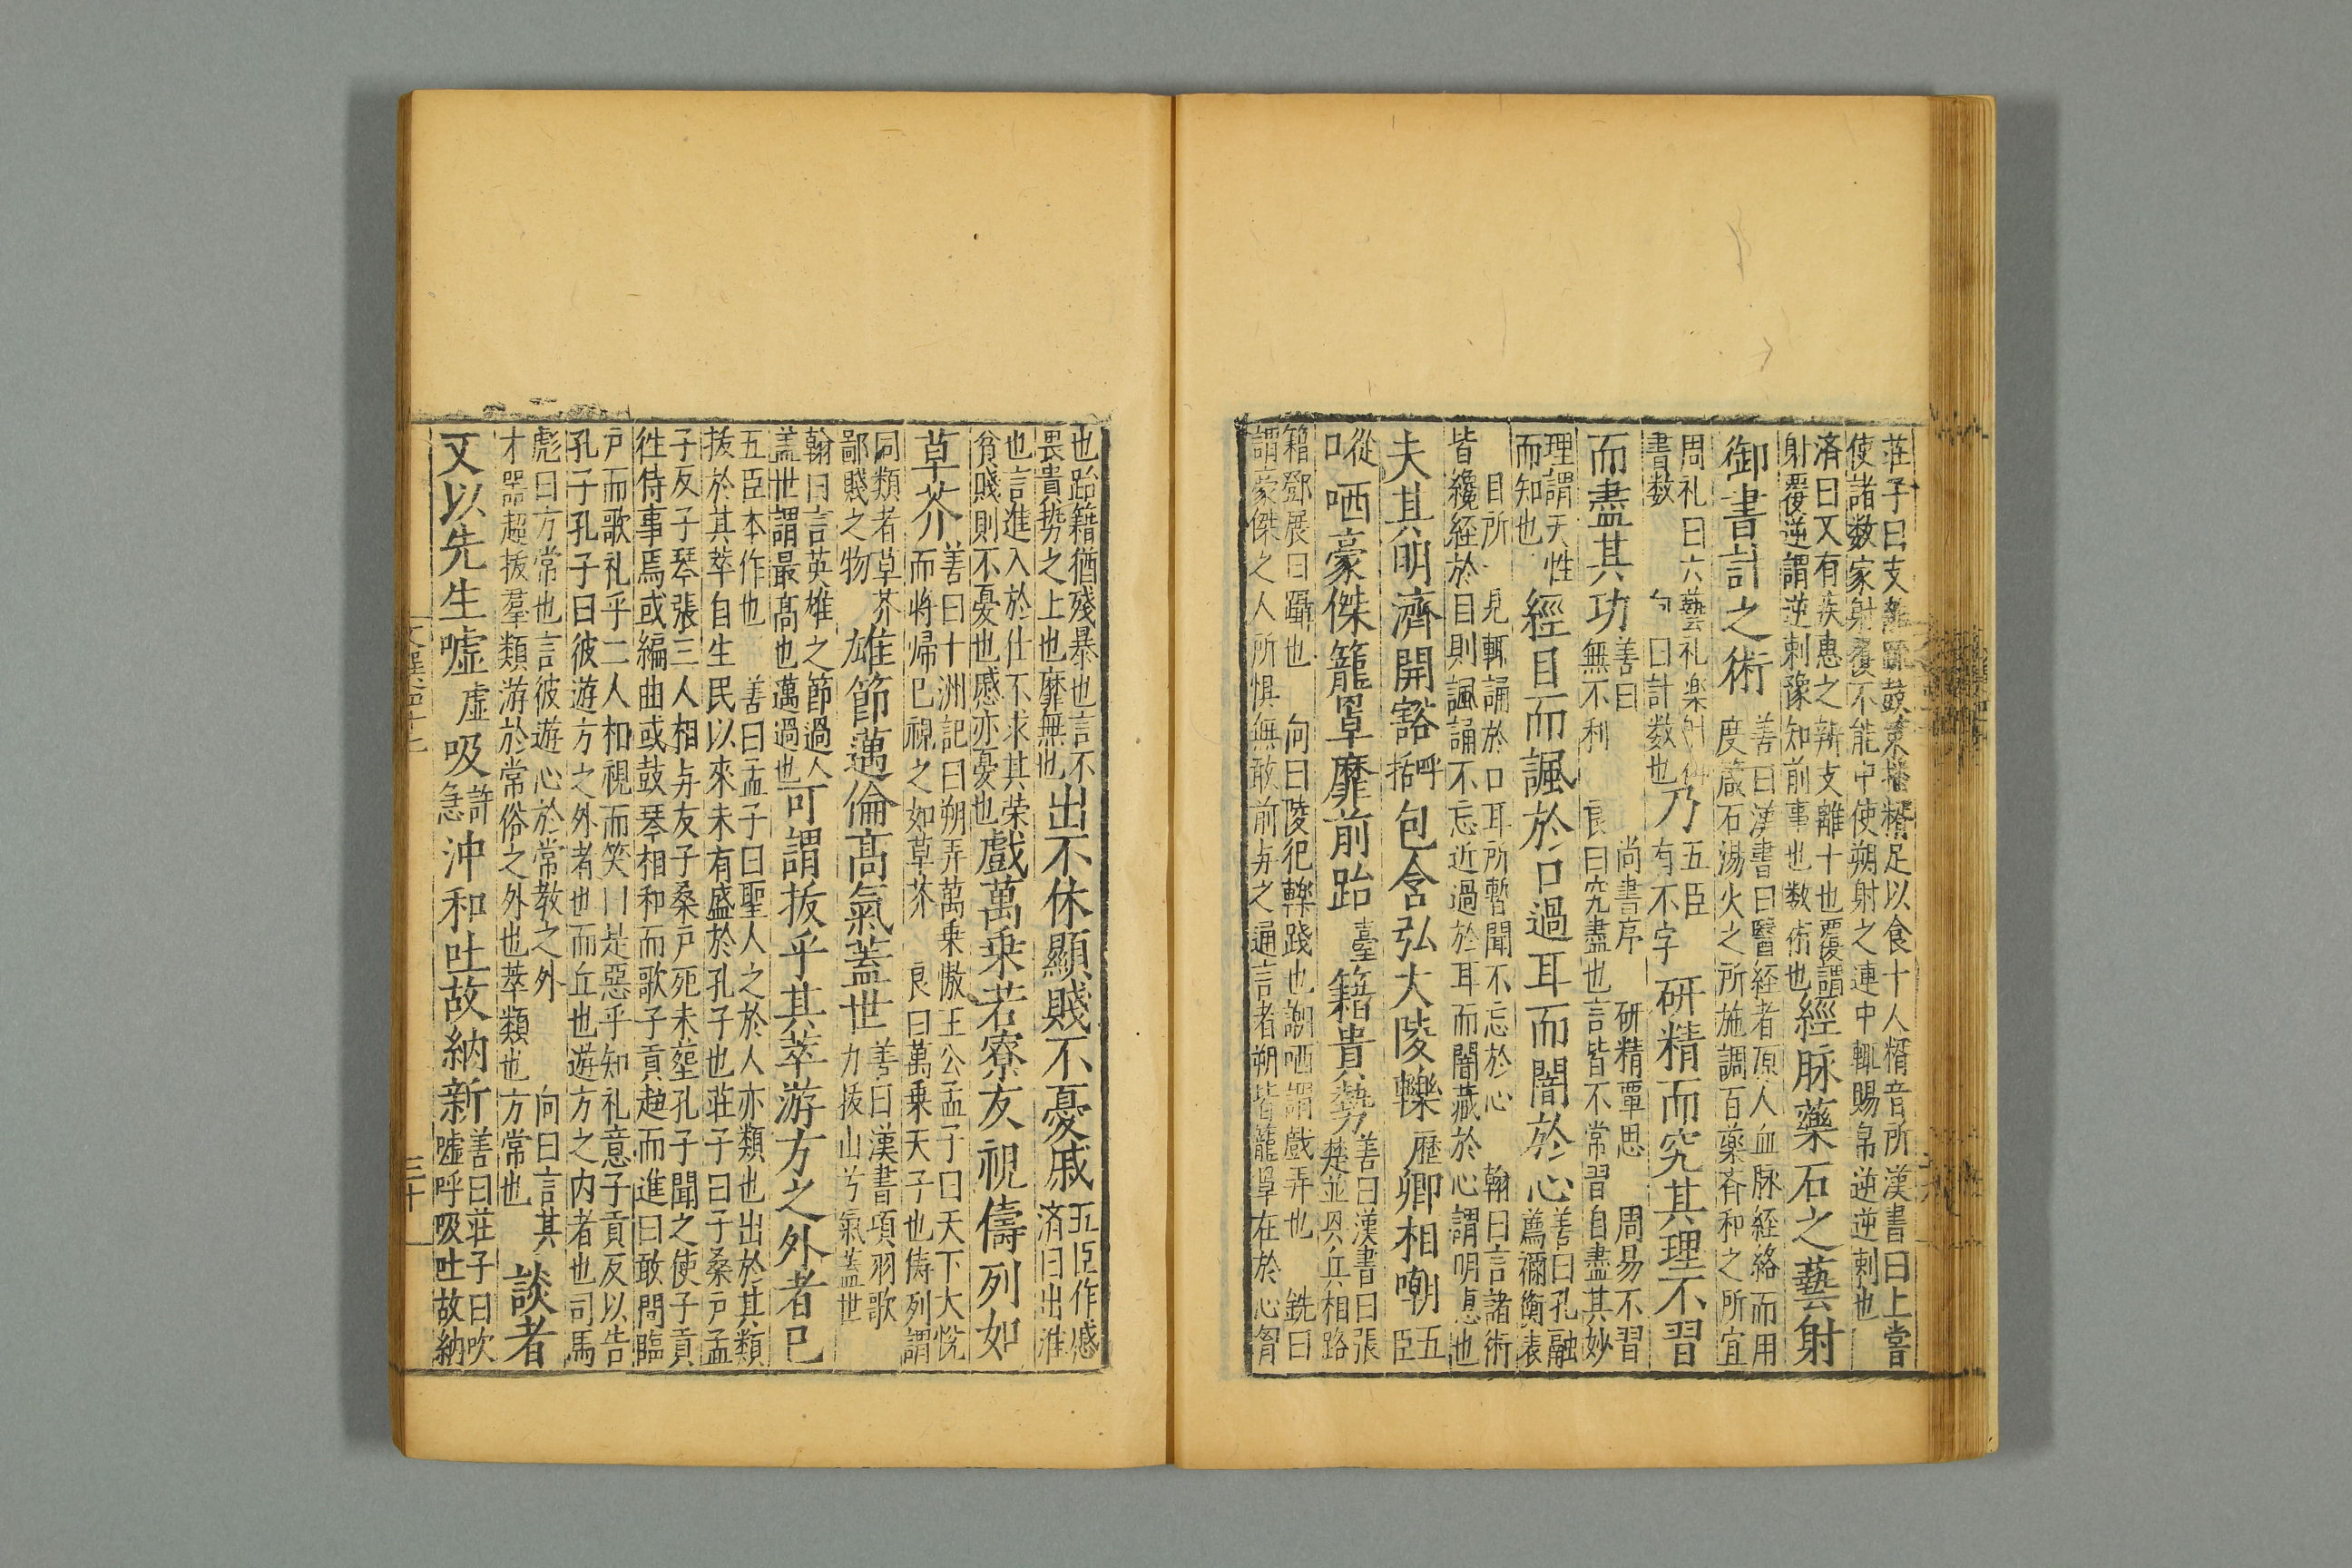 莊子曰支離疏鼓筴播糈足以食十人糈音所漢書曰上嘗
使諸数家射覆不能中使朔射之連中輒賜帛逆逆剌也
済曰又有疾惠之辨支離十也覆謂
射覆逆謂逆剌豫知前事也数術也經脉藥石之藝射
御書計之術善曰漢書曰醫経者原人血脉経絡而用
度箴石湯火之所施調百藥斉和之所宜
周礼曰六藝礼楽射御
書数 向曰計数也乃五臣有不字研精而究其理不習
而盡其功善曰 尚書序 研精覃思 周易不習
無不利 良曰究盡也言皆不常習自盡其妙
理謂天性
而知也經目而諷於口過耳而闇於心善曰孔融
薦禰衡表
目所一見輒誦於口耳所暫聞不忘於心 翰曰言諸術
皆纔経於目則諷誦不忘近過於耳而闇藏於心謂明惠也
夫其明濟開豁呼括包含弘大陵轢歷卿相嘲五臣
從口哂豪傑籠罩靡前跆臺籍貴勢善曰漢書曰張
楚並興兵相路
籍鄧展曰躡也 向曰陵犯轢踐也謿哂謂戲弄也 銑曰
謂豪傑之人所惧無敢前与之通言者朔皆籠罩在於心胷
也跆籍猶殘暴也言不
畏貴勢之上也靡無也出不休顯賤不憂戚五臣作慼
済曰出准
也言進入於仕不求其荣
貧賤則不憂也慼亦憂也戲萬乗若寮友視儔列如
草芥善曰十洲記曰朔弄萬乗慠王公孟子曰天下大恱
而将帰已視之如草芥 良曰萬乗天子也俦列謂
同類者草芥
鄙賤之物雄節邁倫高氣蓋世善曰漢書項羽歌
力拔山兮氣蓋世
翰曰言英雄之節過人
盖世謂最高也邁過也可謂拔乎其萃游方之外者已
五臣本作也 善曰孟子曰聖人之於人亦類也出於其類
拔於其萃自生民以來未有盛於孔子也莊子曰子桑户孟
子反子琴張三人相与友子桑户死未塟孔子聞之使子貢
徃侍事焉或編曲或鼓琴相和而歌子貢趋而進曰敢問臨
户而歌礼乎二人相視而笑曰是惡乎知礼意子貢反以告
孔子孔子曰彼遊方之外者也而丘也遊方之内者也司馬
彪曰方常也言彼遊心於常教之外 向曰言其
才器超拔羣類游於常俗之外也萃類也方常也談者
又以先生嘘虚吸許急沖和吐故納新善曰莊子曰吹
嘘呼吸吐故納
三十一